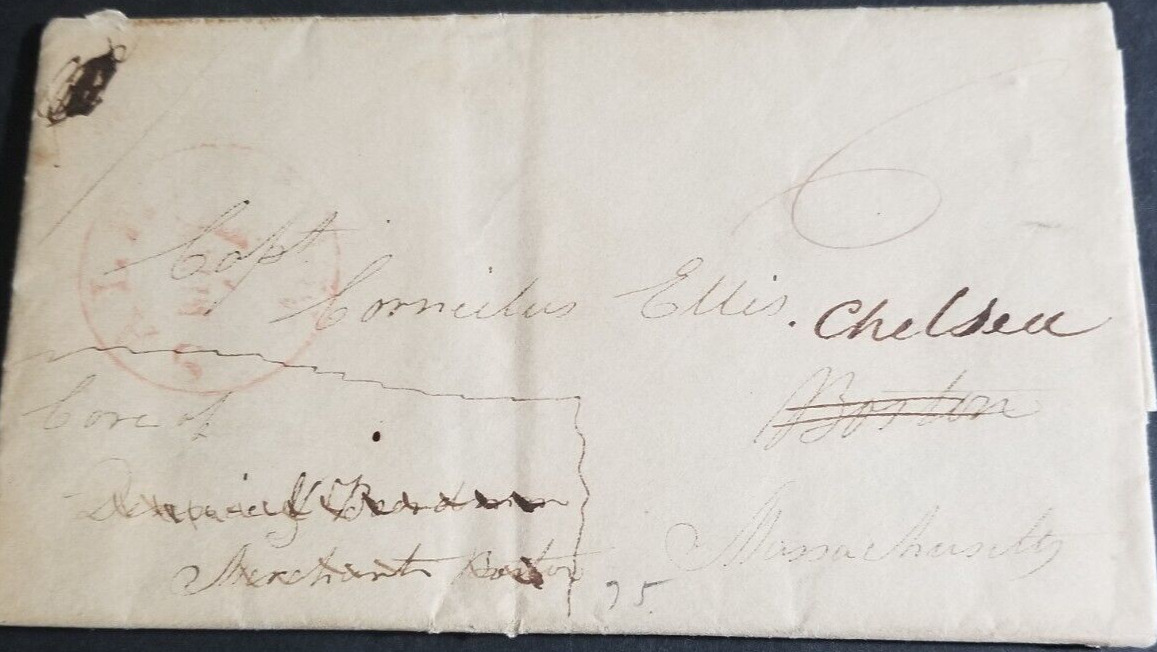 6
Capt.
Cornelius Ellis. Chelsea
Boston
Care of
Merchant Boston
Massachusetts
75